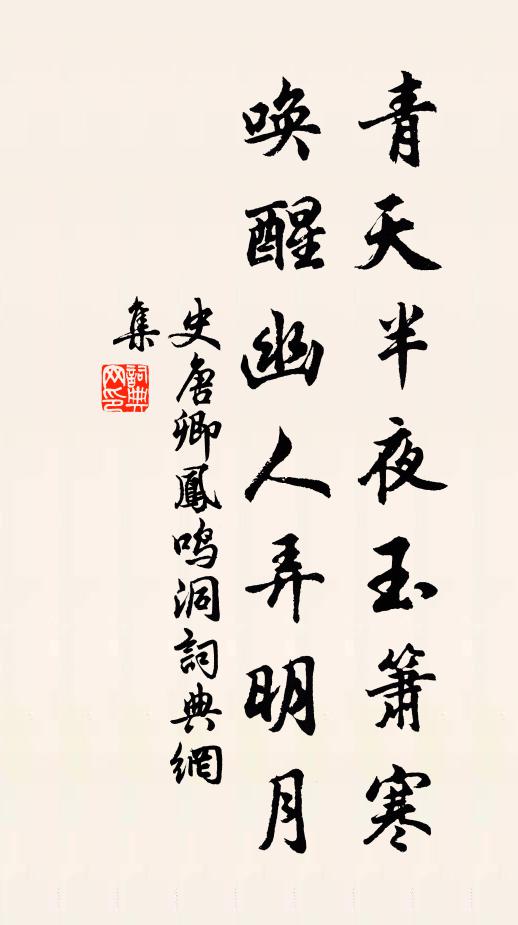 青天半夜玉簫寒
喚醒幽人弄明月
史唐卿鳳鳴洞詞典網
集
詞典
网印